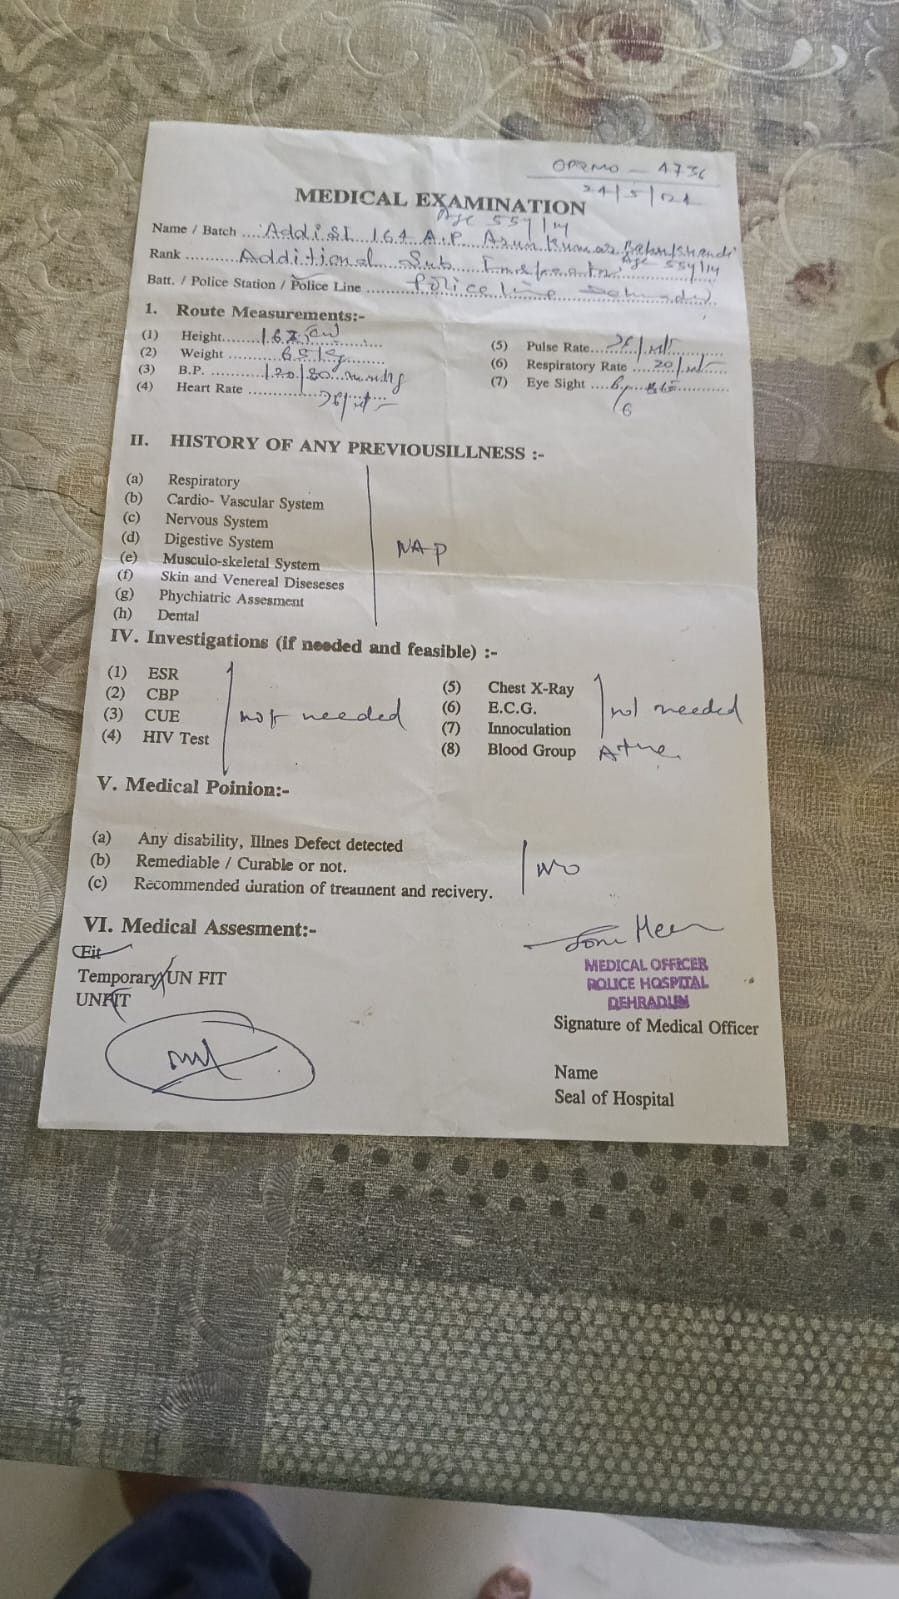 24/5/
MEDICAL EXAMINATION
Age 55y/M
Name / Batch Addl SI 164 A.P. Arun Kumar
Rank Additional Sub Age 55y/M
Batt. / Police Station / Police Line Police line
1. Route Measurements:-
(1) Height cm
(2) Weight
(3) B.P. 120/80 mmHg
(4) Heart Rate
(5) Pulse Rate
(6) Respiratory Rate 20/
(7) Eye Sight 6
6
II. HISTORY OF ANY PREVIOUSILLNESS :-
(a) Respiratory
(b) Cardio- Vascular System
(c) Nervous System
(d) Digestive System
NAP
(e) Musculo-skeletal System
(f) Skin and Venereal Diseseses
(g) Phychiatric Assesment
(h) Dental
IV. Investigations (if needed and feasible) :-
(1) ESR
(2) CBP
(3) CUE
(4) HIV Test
not needed
(5) Chest X-Ray
(6) E.C.G.
(7) Innoculation
not needed
(8) Blood Group A+ve
V. Medical Poinion:-
(a) Any disability, Illnes Defect detected
(b) Remediable / Curable or not.
(c) Recommended duration of treatment and recivery.
NO
VI. Medical Assesment:-
Fit
Temporary/UN FIT
UNFIT
MEDICAL OFFICER
POLICE HOSPITAL
DEHRADUN
Signature of Medical Officer
Name
Seal of Hospital